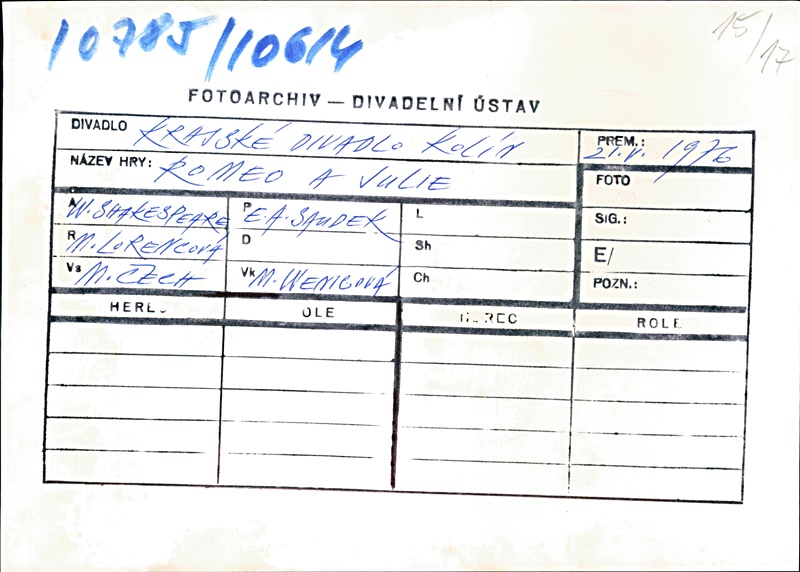 10785/10614
15/17
FOTOARCHIV — DIVADELNÍ ÚSTAV
DIVADLO KRAJSKÉ DIVADLO KOLÍN
PREM.: 21.V. 1976
NÁZEV HRY: ROMEO A JULIE
FOTO
A W. SHAKESPEARE
P E. A. SAUDEK
L
SIG.:
R M. LORENCOVÁ
D
Sh
E/
Vs M. CZECH
Vk M. WENIGOVÁ
Ch
POZN.:
HEREC OLE HEREC ROLE